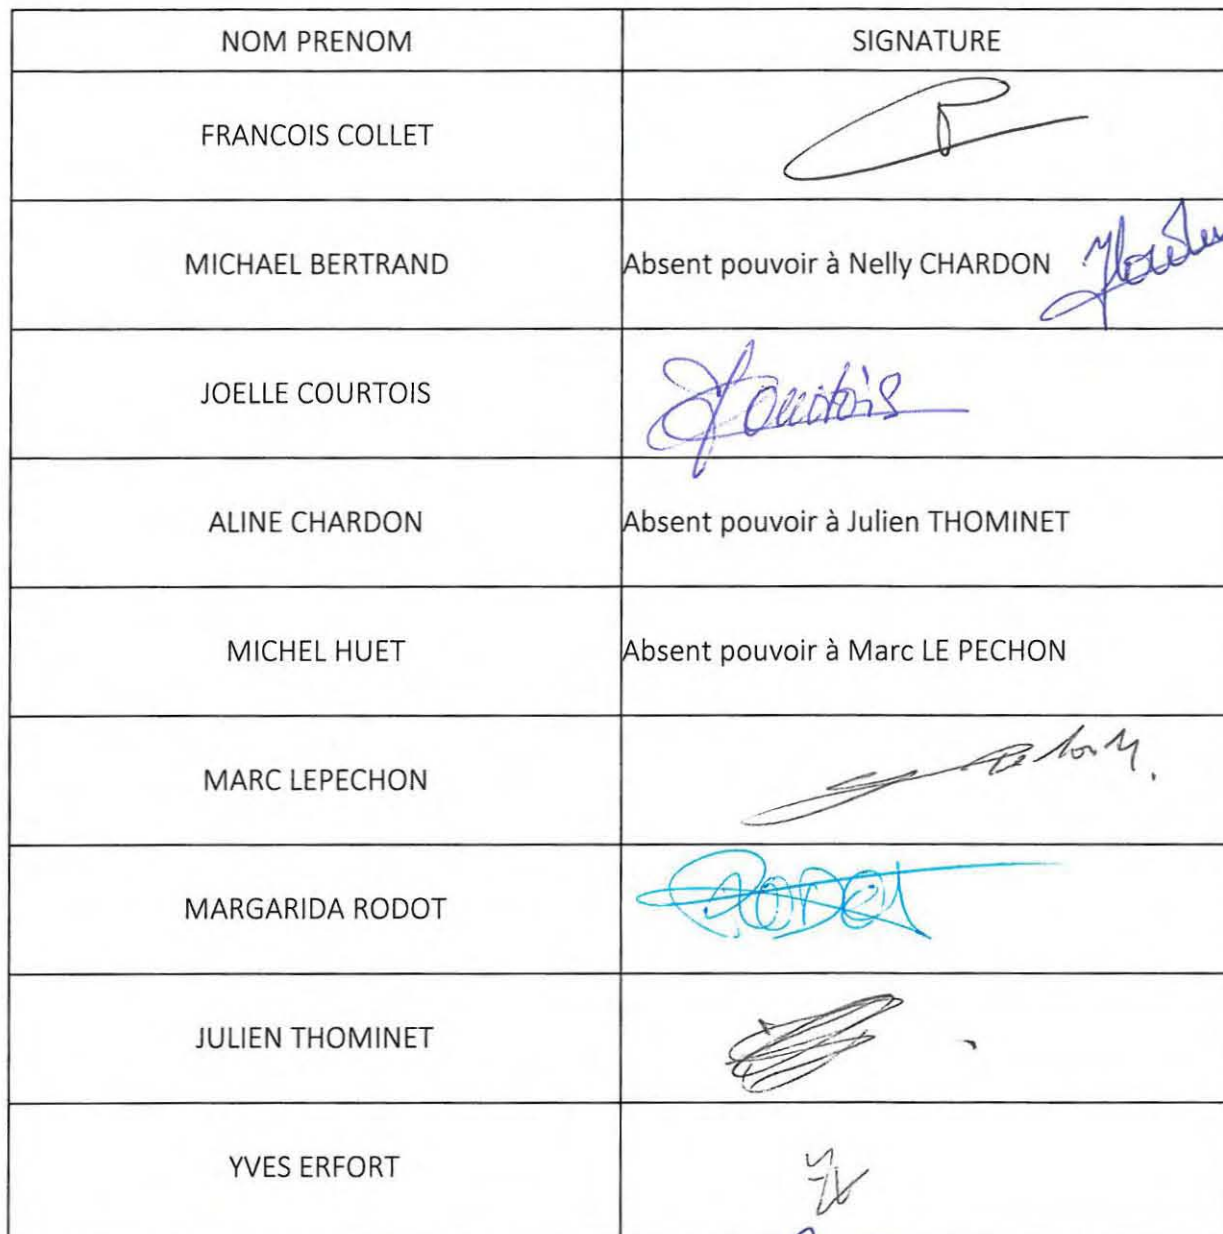 NOM PRENOM SIGNATURE
FRANCOIS COLLET
MICHAEL BERTRAND Absent pouvoir à Nelly CHARDON
JOELLE COURTOIS Courtois
ALINE CHARDON Absent pouvoir à Julien THOMINET
MICHEL HUET Absent pouvoir à Marc LE PECHON
MARC LEPECHON
MARGARIDA RODOT RODOT
JULIEN THOMINET
YVES ERFORT